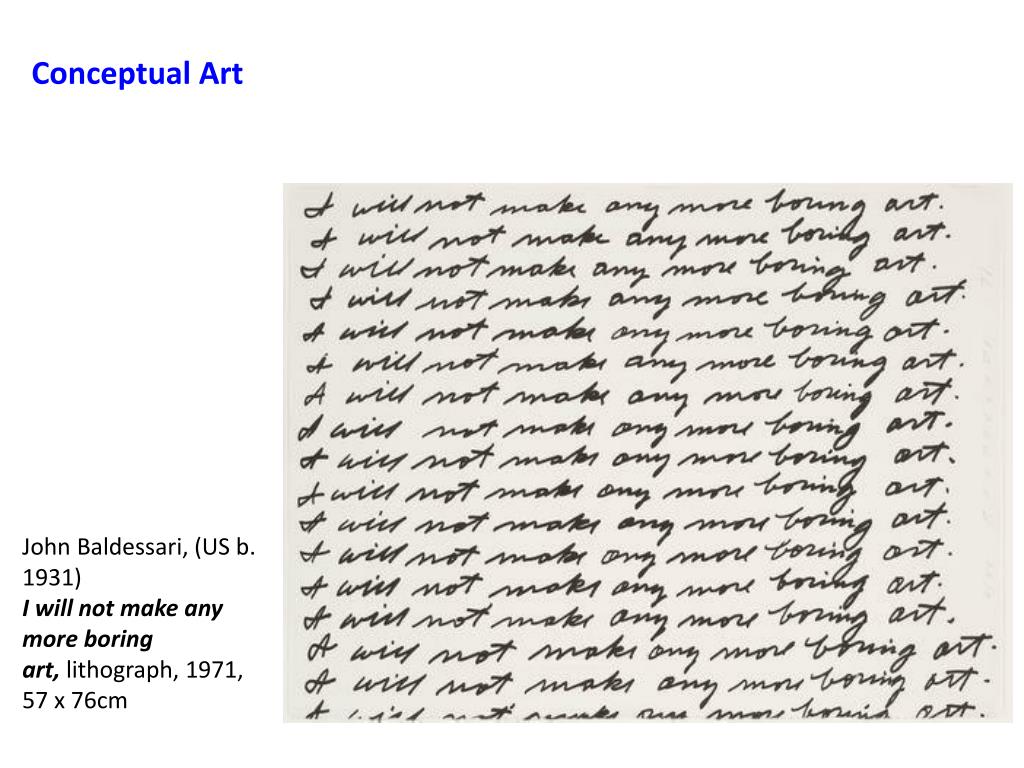 Conceptual Art
I will not make any more boring art.
I will not make any more boring art.
I will not make any more boring art.
I will not make any more boring art.
I will not make any more boring art.
I will not make any more boring art.
I will not make any more boring art.
I will not make any more boring art.
I will not make any more boring art.
I will not make any more boring art.
I will not make any more boring art.
I will not make any more boring art.
I will not make any more boring art.
I will not make any more boring art.
I will not make any more boring art.
I will not make any more boring art.
I will not make any more boring art.
John Baldessari, (US b.
1931)
I will not make any
more boring
art, lithograph, 1971,
57 x 76cm